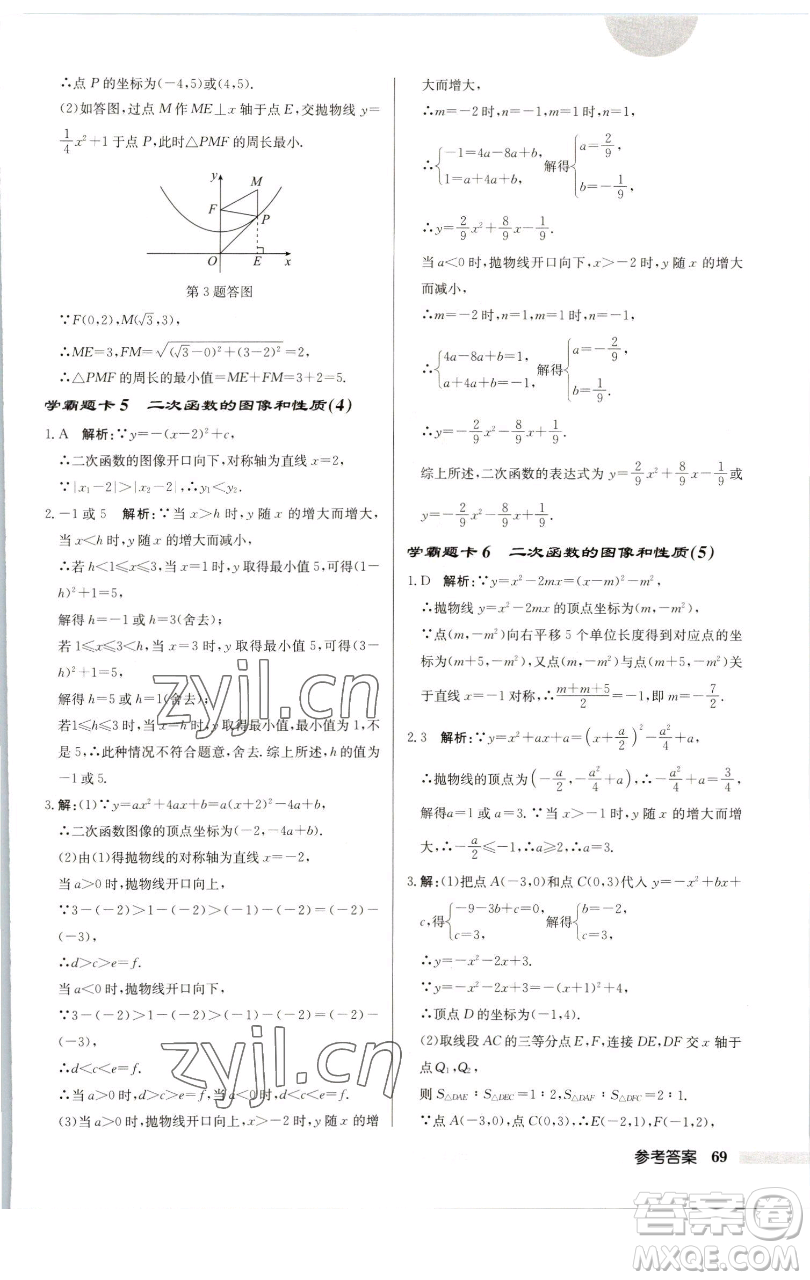 ∴点 P 的坐标为(-4,5)或(4,5).
(2)如答图,过点 M 作 ME⊥x 轴于点 E,交抛物线 y=
1/4 x²+1 于点 P,此时△PMF 的周长最小.
y
M
F
P
O
E
x
第 3 题答图
∵F(0,2),M(√3,3),
∴ME=3,FM=√((√3-0)²+(3-2)²)=2,
∴△PMF 的周长的最小值=ME+FM=3+2=5.
学霸题卡 5 二次函数的图像和性质(4)
1. A 解析:∵y=-(x-2)²+c,
∴二次函数的图像开口向下,对称轴为直线 x=2,
∵|x₁-2|>|x₂-2|,∴y₁<y₂.
2. -1 或 5 解析:∵当 x>h 时,y 随 x 的增大而增大,
当 x<h 时,y 随 x 的增大而减小,
∴若 h<1≤x≤3,当 x=1 时,y 取得最小值 5,可得(1-
h)²+1=5,
解得 h=-1 或 h=3(舍去);
若 1≤x≤3<h,当 x=3 时,y 取得最小值 5,可得(3-
h)²+1=5,
解得 h=5 或 h=1(舍去);
若 1≤h≤3 时,当 x=h 时,y 取得最小值为 1,不
是 5,∴此种情况不符合题意,舍去. 综上所述,h 的值为
-1 或 5.
3. 解:(1)∵y=ax²+4ax+b=a(x+2)²-4a+b,
∴二次函数图像的顶点坐标为(-2,-4a+b).
(2)由(1)得抛物线的对称轴为直线 x=-2,
当 a>0 时,抛物线开口向上,
∵3-(-2)>1-(-2)>(-1)-(-2)=(-2)-
(-3),
∴d>c>e=f.
当 a<0 时,抛物线开口向下,
∵3-(-2)>1-(-2)>(-1)-(-2)=(-2)-
(-3),
∴d<c<e=f.
∴当 a>0 时,d>c>e=f,当 a<0 时,d<c<e=f.
(3)当 a>0 时,抛物线开口向上,x>-2 时,y 随 x 的增
大而增大,
∴m=-2 时,n=-1,m=1 时,n=1,
∴{-1=4a-8a+b, 1=a+4a+b, 解得{a=2/9, b=-1/9,
∴y=2/9 x²+8/9 x-1/9.
当 a<0 时,抛物线开口向下,x>-2 时,y 随 x 的增大
而减小,
∴m=-2 时,n=1,m=1 时,n=-1,
∴{4a-8a+b=1, a+4a+b=-1, 解得{a=-2/9, b=1/9.
∴y=-2/9 x²-8/9 x+1/9.
综上所述,二次函数的表达式为 y=2/9 x²+8/9 x-1/9 或
y=-2/9 x²-8/9 x+1/9.
学霸题卡 6 二次函数的图像和性质(5)
1. D 解析:∵y=x²-2mx=(x-m)²-m²,
∴抛物线 y=x²-2mx 的顶点坐标为(m,-m²).
∵点(m,-m²)向右平移 5 个单位长度得到对应点的坐
标为(m+5,-m²),又点(m,-m²)与点(m+5,-m²)关
于直线 x=-1 对称,∴(m+m+5)/2=-1,即 m=-7/2.
2. 3 解析:∵y=x²+ax+a=(x+a/2)²-a²/4+a,
∴抛物线的顶点为(-a/2,-a²/4+a),∴-a²/4+a=3/4,
解得a=1 或 a=3. ∵当 x>-1 时,y 随 x 的增大而增
大,∴-a/2≤-1,∴a≥2,∴a=3.
3. 解:(1)把点 A(-3,0)和点 C(0,3)代入 y=-x²+bx+
c,得{-9-3b+c=0, c=3, 解得{b=-2, c=3,
∴y=-x²-2x+3.
∵y=-x²-2x+3=-(x+1)²+4,
∴顶点 D 的坐标为(-1,4).
(2)取线段 AC 的三等分点 E,F,连接 DE,DF 交 x 轴于
点 Q₁,Q₂,
则 S△DAE∶S△DEC=1∶2,S△DAF∶S△DFC=2∶1.
∵点 A(-3,0),点 C(0,3),∴E(-2,1),F(-1,2),
参考答案 69
zyjl.cn
zyjl.cn
答案圈
MXQE.COM